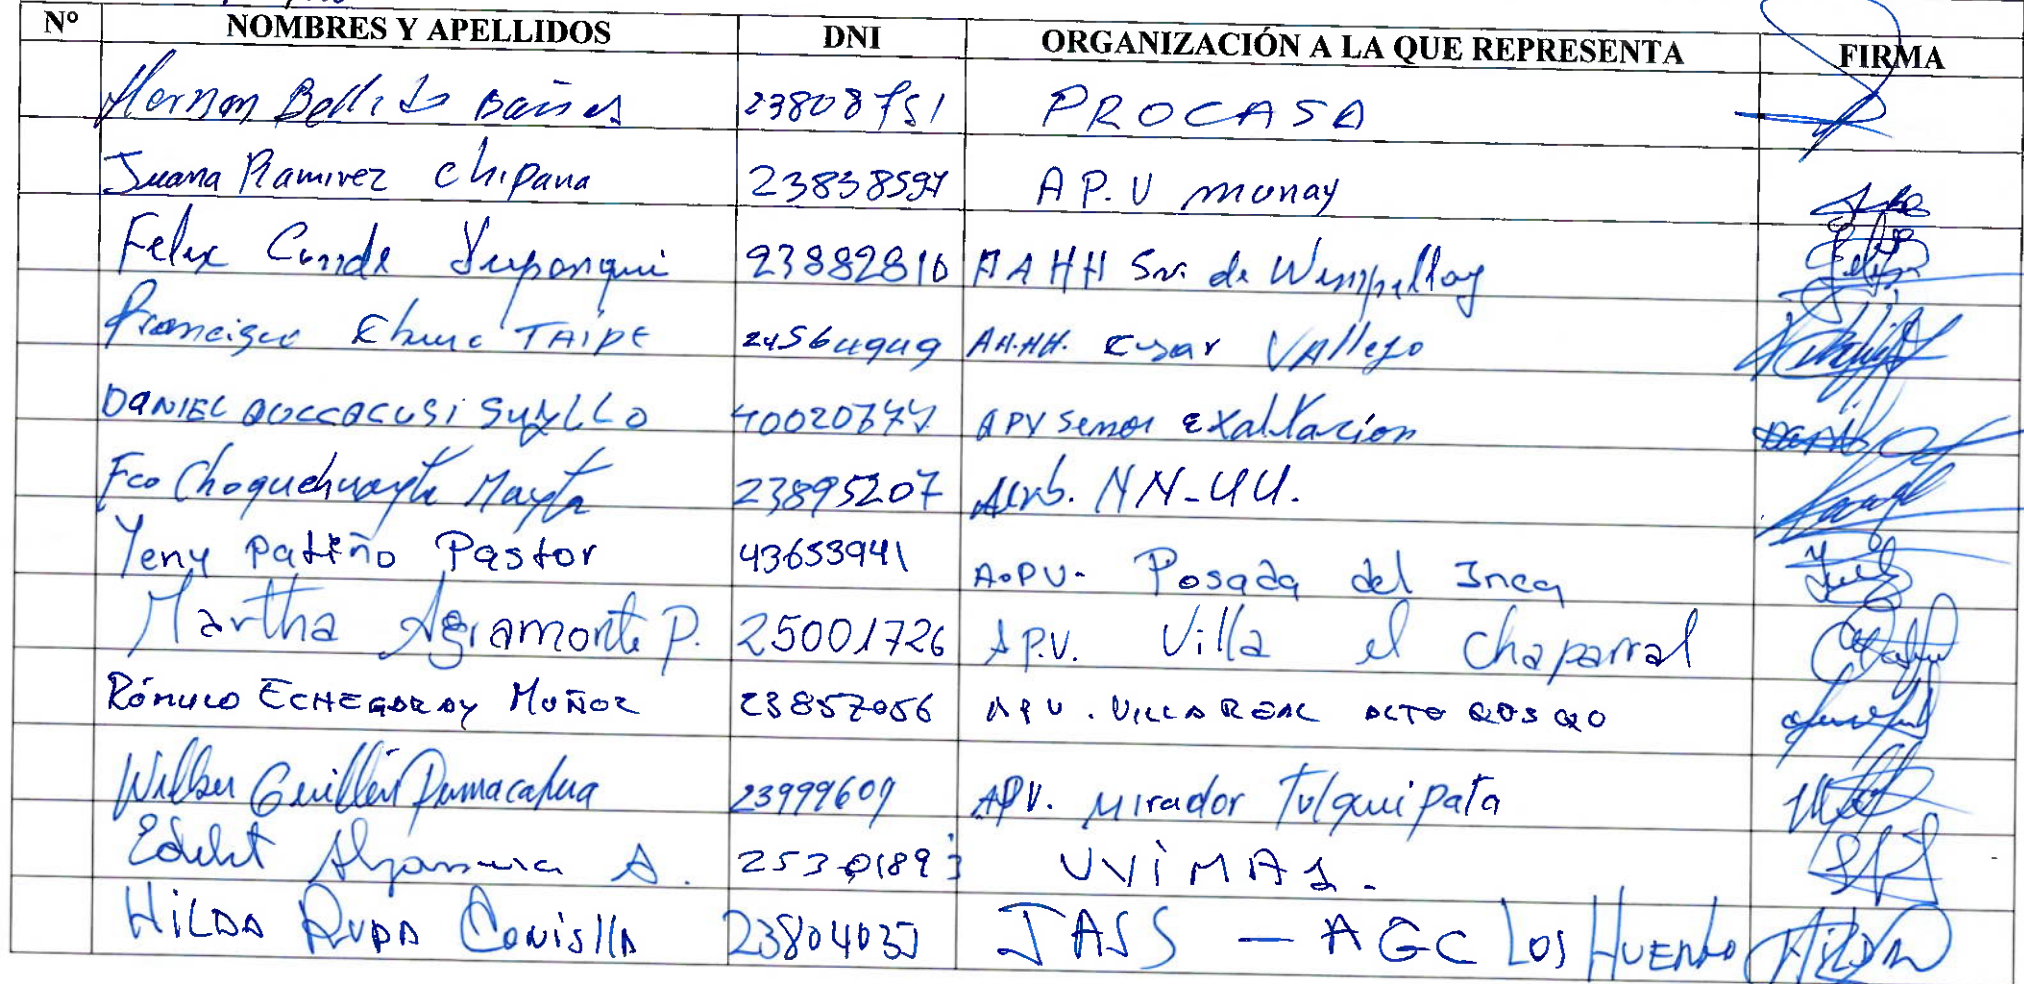 N° NOMBRES Y APELLIDOS DNI ORGANIZACIÓN A LA QUE REPRESENTA FIRMA
Hernan 23808751 PROCASA
Juana Ramirez Chipana 23838597 A P.U monay
Felix Conde Yupanqui 23882810 AAHH Sr. de
Francisco TAIPE 24564949 AA.HH. Cesar Vallejo
DANIEL QUCCACUSI SUYLLO APV Señor Exaltacion
Fco Choquehuayta Mayta 23895207 NN-UU.
Yeny Patiño Pastor 43653941 A.P.V. Posada del Inca
Martha Agramonte P. 25001726 A P.V. Villa el Chaparral
Rómulo ECHEGARAY MUÑOZ 23857056 APV. VILLA REAL ALTO QOSQO
Wilber Guillén Pumacahua 23999609 APV. Mirador Tulquipata
25301893 UVIMA 1.
HILDA RUPA 23804035 JASS - AGC LOS HUERTO HILDA